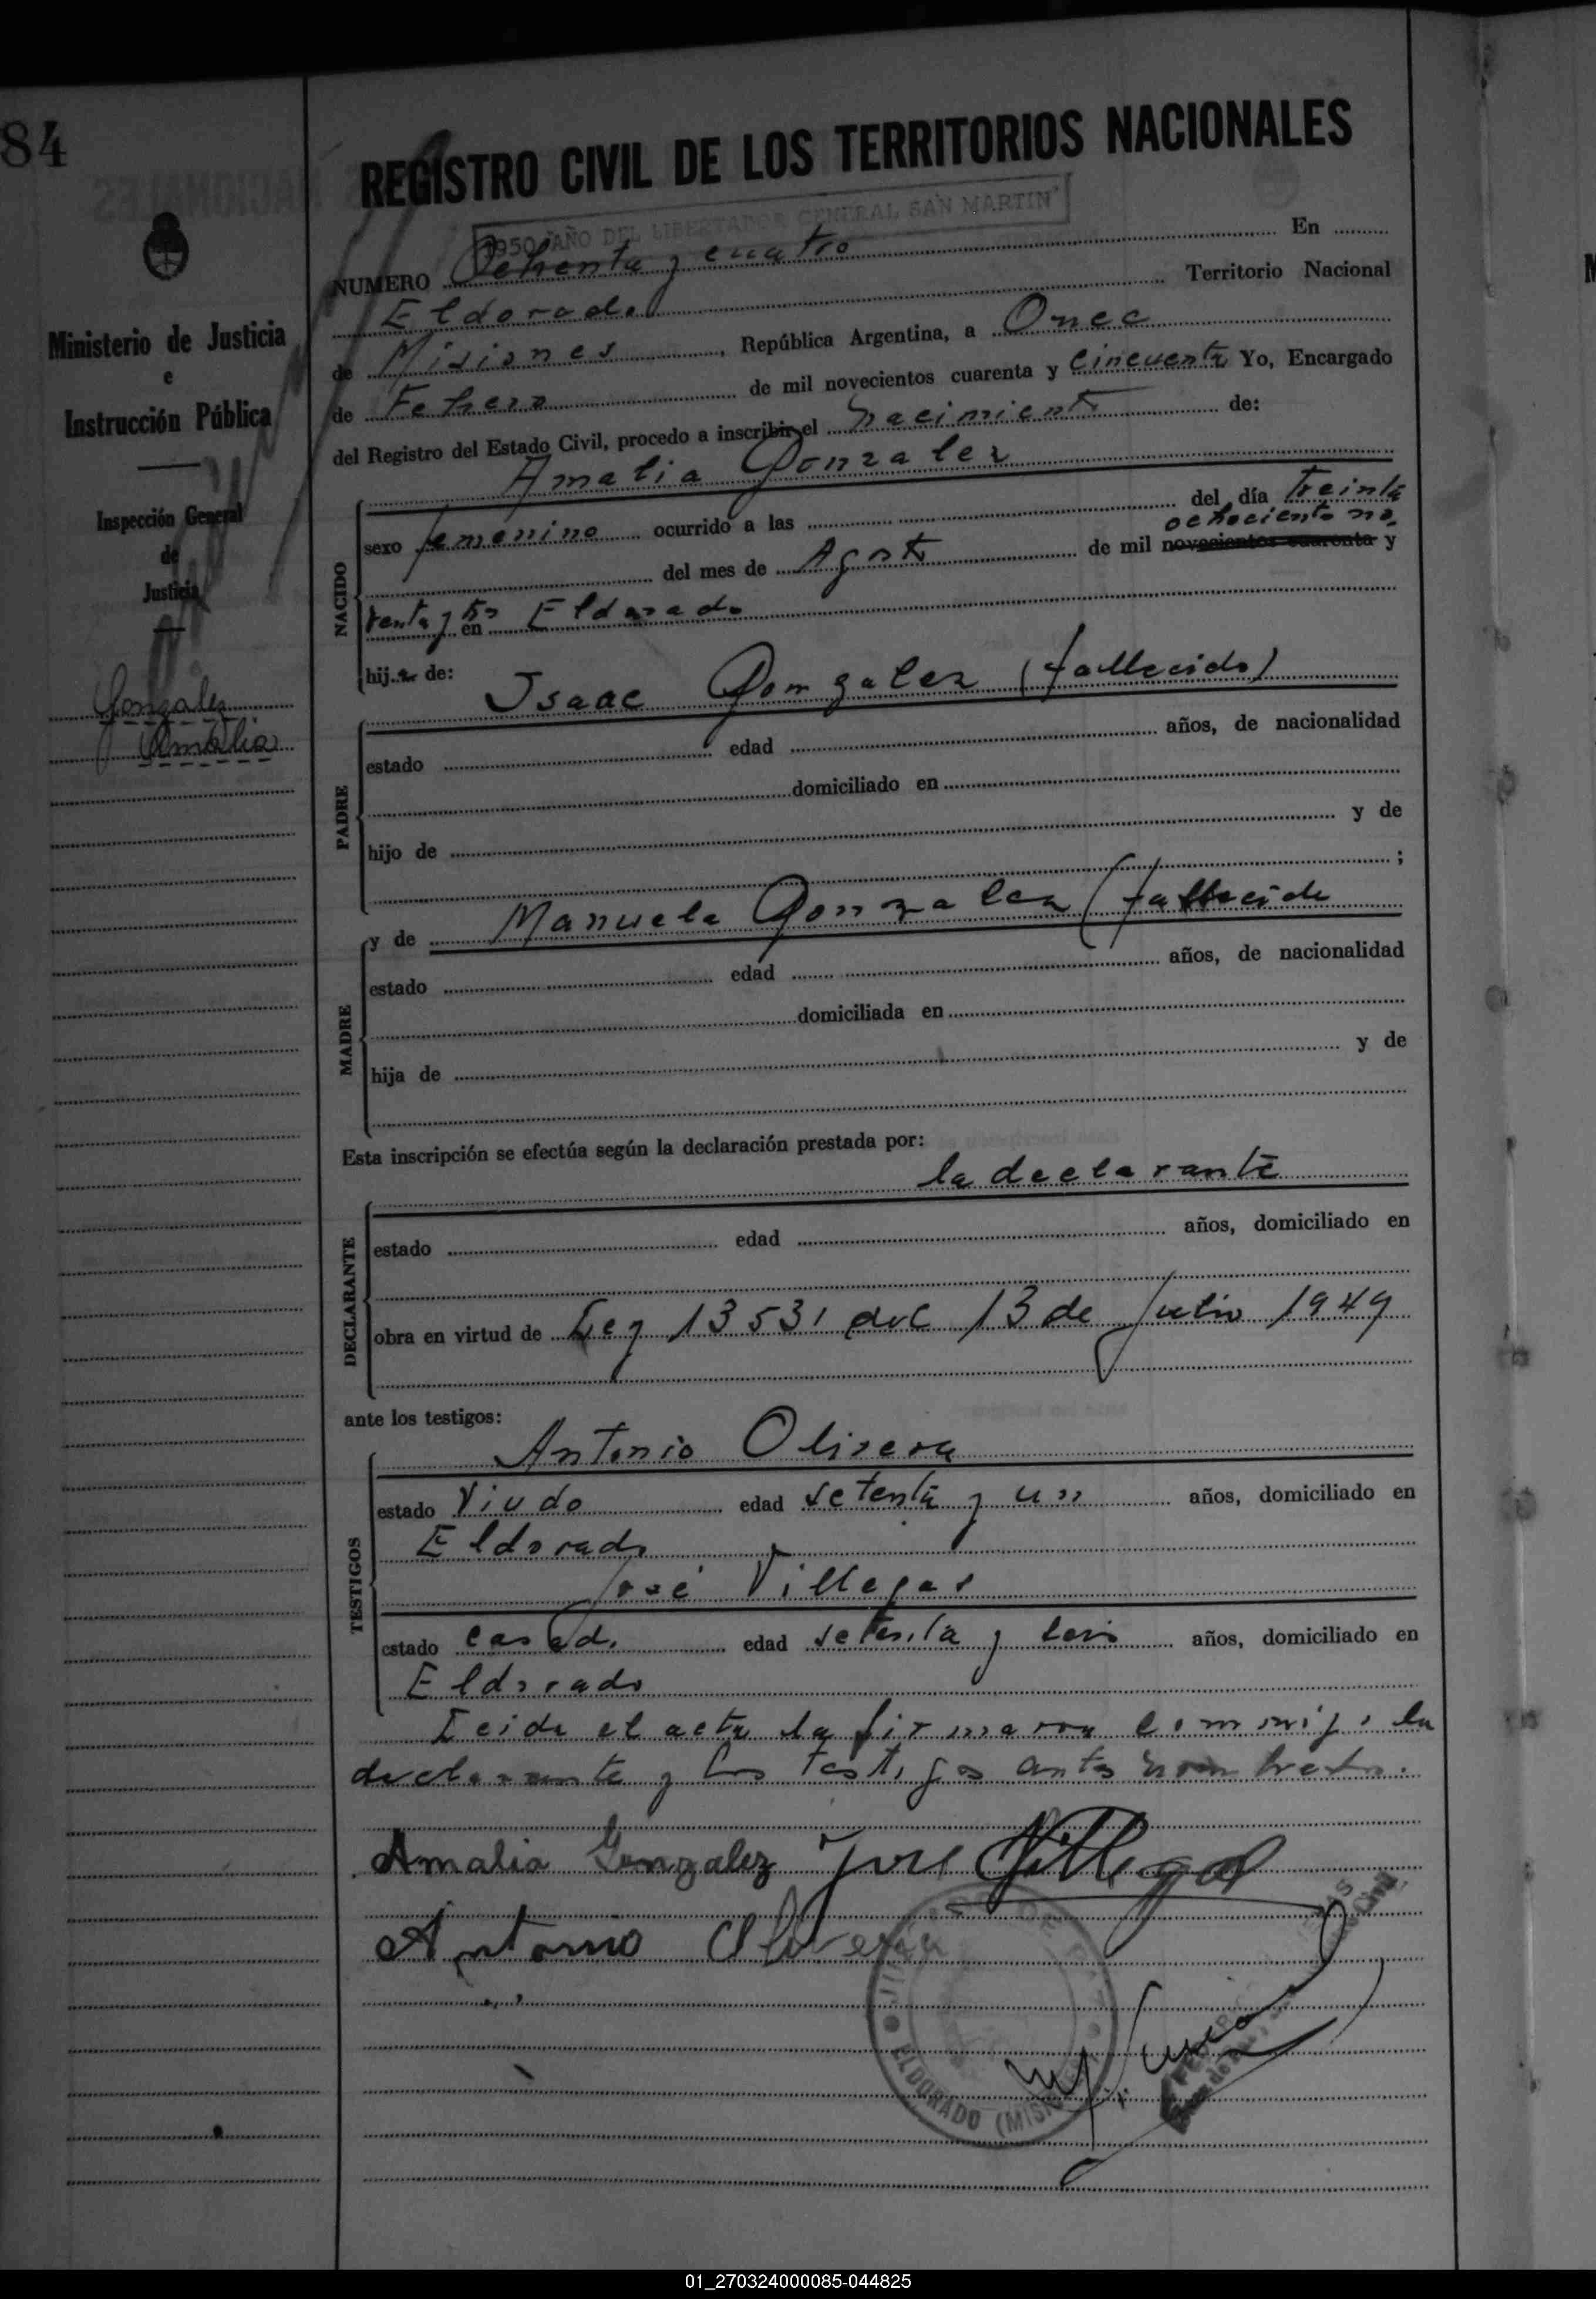 84
REGISTRO CIVIL DE LOS TERRITORIOS NACIONALES
1950 AÑO DEL LIBERTADOR GENERAL SAN MARTIN
NUMERO Ochenta y cuatro En
Eldorado Territorio Nacional
de Misiones, República Argentina, a Once
de Febrero de mil novecientos cuarenta y cincuenta Yo, Encargado
del Registro del Estado Civil, procedo a inscribir el nacimiento de:
Ministerio de Justicia
e
Instrucción Pública
Inspección General
de
Justicia
Gonzalez
Amalia
NACIDO
Amalia Gonzalez
sexo femenino ocurrido a las del día treinta
ochociento no
del mes de Agosto de mil novecientos cuarenta y
venta y en Eldorado
hij a de:
PADRE
Isaac Gonzalez (fallecido)
estado edad años, de nacionalidad
domiciliado en
hijo de y de
;
MADRE
y de Manuela Gonzalez (fallecida
estado edad años, de nacionalidad
domiciliada en
hija de y de
Esta inscripción se efectúa según la declaración prestada por:
DECLARANTE
la declarante
estado edad años, domiciliado en
obra en virtud de Ley 13531 del 13 de Julio 1949
ante los testigos:
TESTIGOS
Antonio Olivera
estado Viudo edad setenta y un años, domiciliado en
Eldorado
José Villegas
estado casado edad setenta y seis años, domiciliado en
Eldorado
Leida el acta la firmaron conmigo la
declarante y los testigos antes nombrados.
Amalia Gonzalez José Villegas
Antonio Olivera
ELDORADO (MISIONES)
01_270324000085-044825